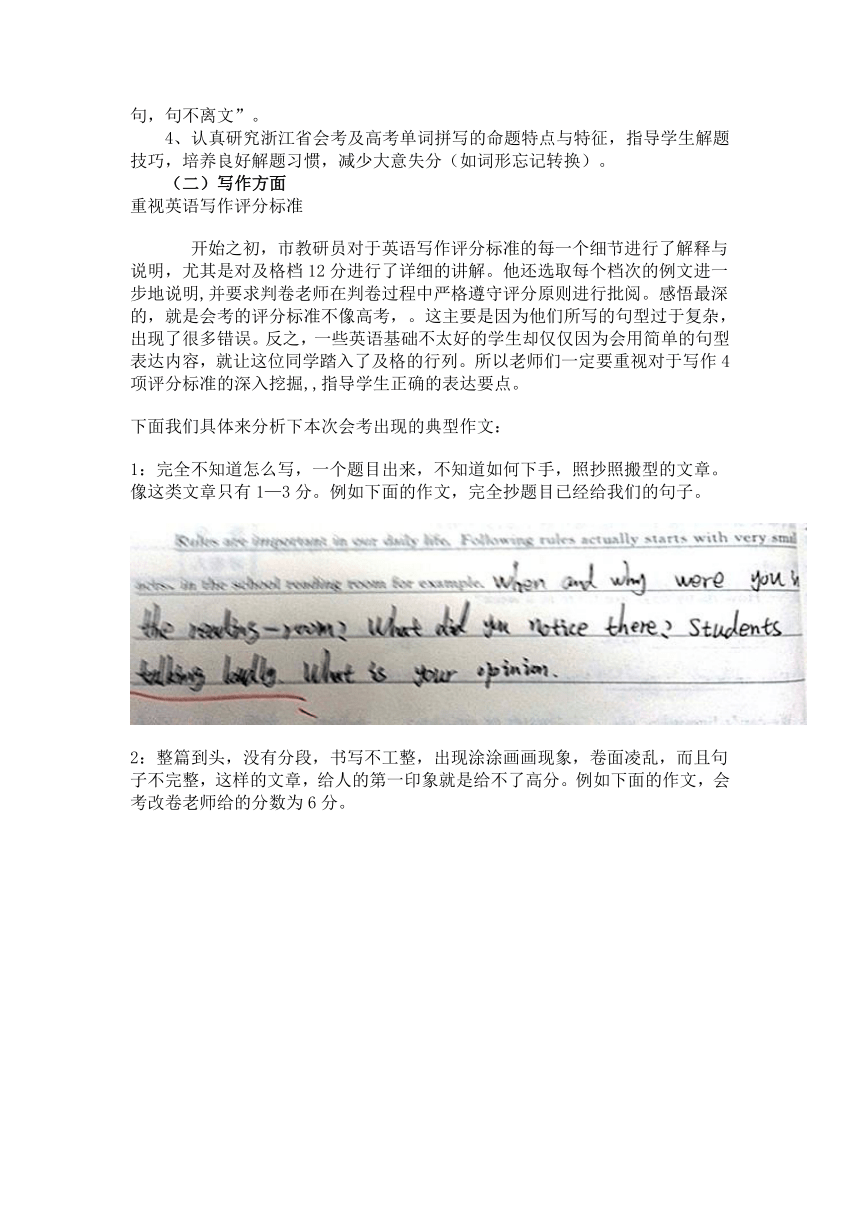 句，句不离文”。
4、认真研究浙江省会考及高考单词拼写的命题特点与特征，指导学生解题
技巧，培养良好解题习惯，减少大意失分（如词形忘记转换）。
（二）写作方面
重视英语写作评分标准
开始之初，市教研员对于英语写作评分标准的每一个细节进行了解释与
说明，尤其是对及格档 12 分进行了详细的讲解。他还选取每个档次的例文进一
步地说明,并要求判卷老师在判卷过程中严格遵守评分原则进行批阅。感悟最深
的，就是会考的评分标准不像高考，。这主要是因为他们所写的句型过于复杂，
出现了很多错误。反之，一些英语基础不太好的学生却仅仅因为会用简单的句型
表达内容，就让这位同学踏入了及格的行列。所以老师们一定要重视对于写作 4
项评分标准的深入挖掘,,指导学生正确的表达要点。
下面我们具体来分析下本次会考出现的典型作文：
1：完全不知道怎么写，一个题目出来，不知道如何下手，照抄照搬型的文章。
像这类文章只有 1—3 分。例如下面的作文，完全抄题目已经给我们的句子。
Rules are important in our daily life. Following rules actually starts with very smal
acts, in the school reading room for example. When and why were you i
the reading-room? What did you notice there? Students
talking loudly. What is your opinion.
2：整篇到头，没有分段，书写不工整，出现涂涂画画现象，卷面凌乱，而且句
子不完整，这样的文章，给人的第一印象就是给不了高分。例如下面的作文，会
考改卷老师给的分数为 6 分。